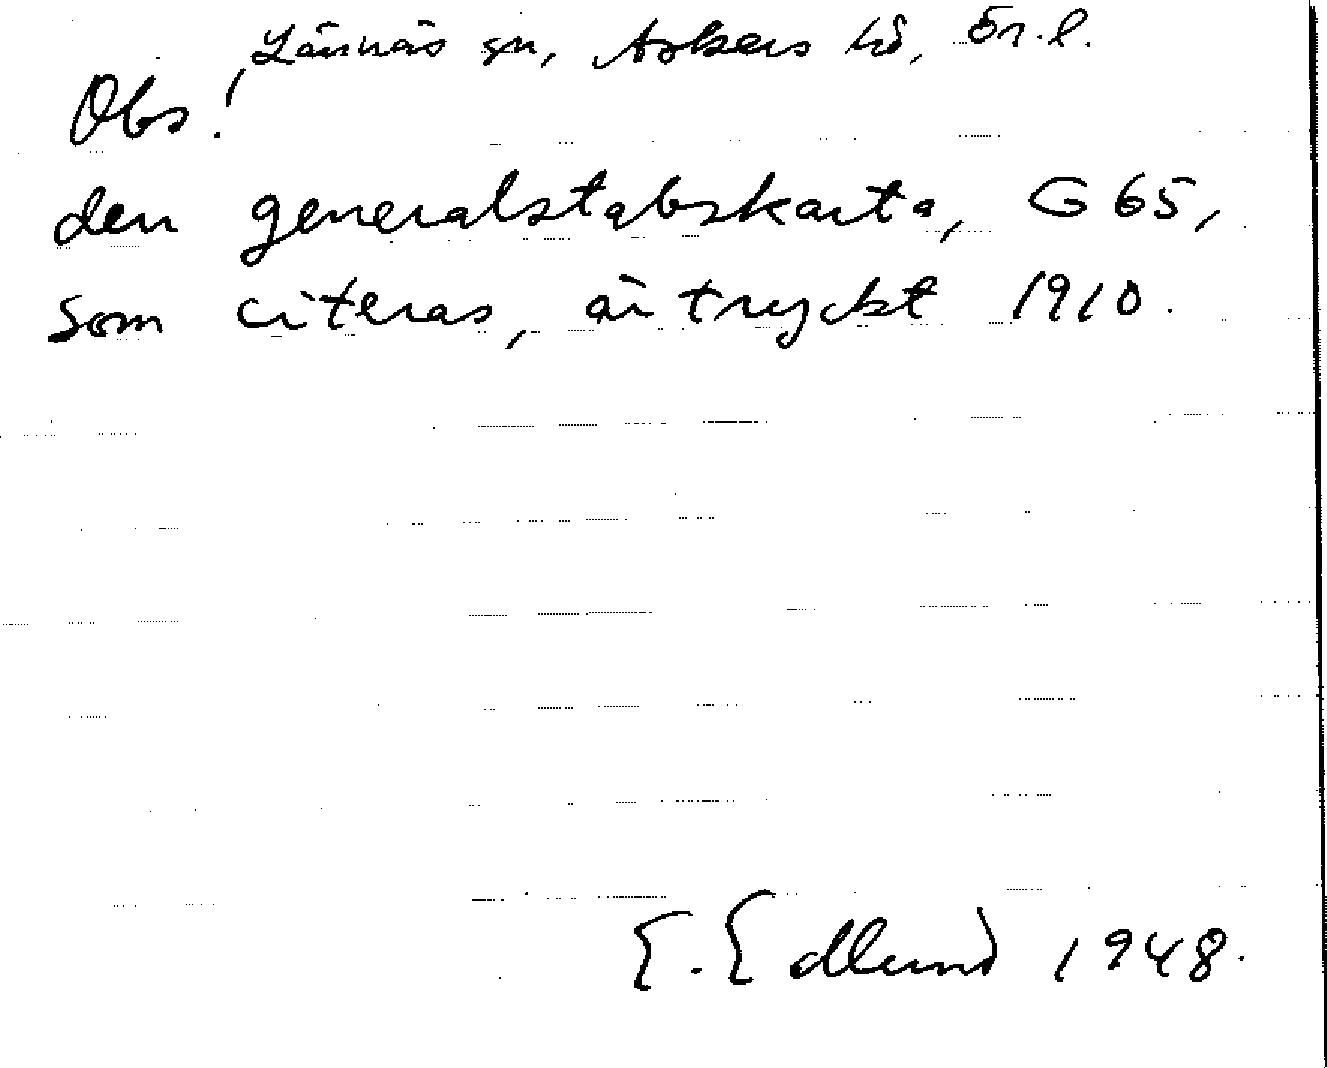 Lännäs sn, Askers hd, Ör.l.
Obs!
den generalstabskarta, G 65,
som citeras, är tryckt 1910.
E. Edlund 1948.